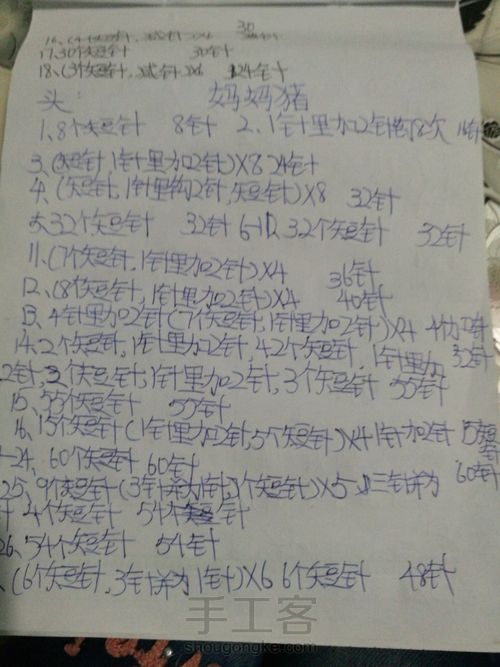 30
16、(4个短针,减针)×6
17、30个短针 30针
18、(3个短针,减针)×6 24针
头: 妈妈猪
1、8个短针 8针 2、1针里加2针钩8次 16针
3、(短针,1针里加2针)×8 24针
4、(短针,1针里钩2针,短针)×8 32针
5、32个短针 32针 6-10、32个短针 32针
11、(7个短针,1针里加2针)×4 36针
12、(8个短针,1针里加2针)×4 40针
13、4针里加2针(7个短针,1针里加2针)×4
14、2个短针,1针里加2针,42个短针,1针里加
2针,3个短针,1针里加2针,3个短针 55针
15、55个短针 55针
16、15个短针(1针里加2针,5个短针)×4 1针加2针 15短针
-24、60个短针 60针 60针
25、9个短针(3针并为1针,3个短针)×5 三针并为
针 4个短针 54个短针
26、54个短针 54针
、(6个短针,3针并为1针)×6 6个短针 48针
手工客
shougongke.com